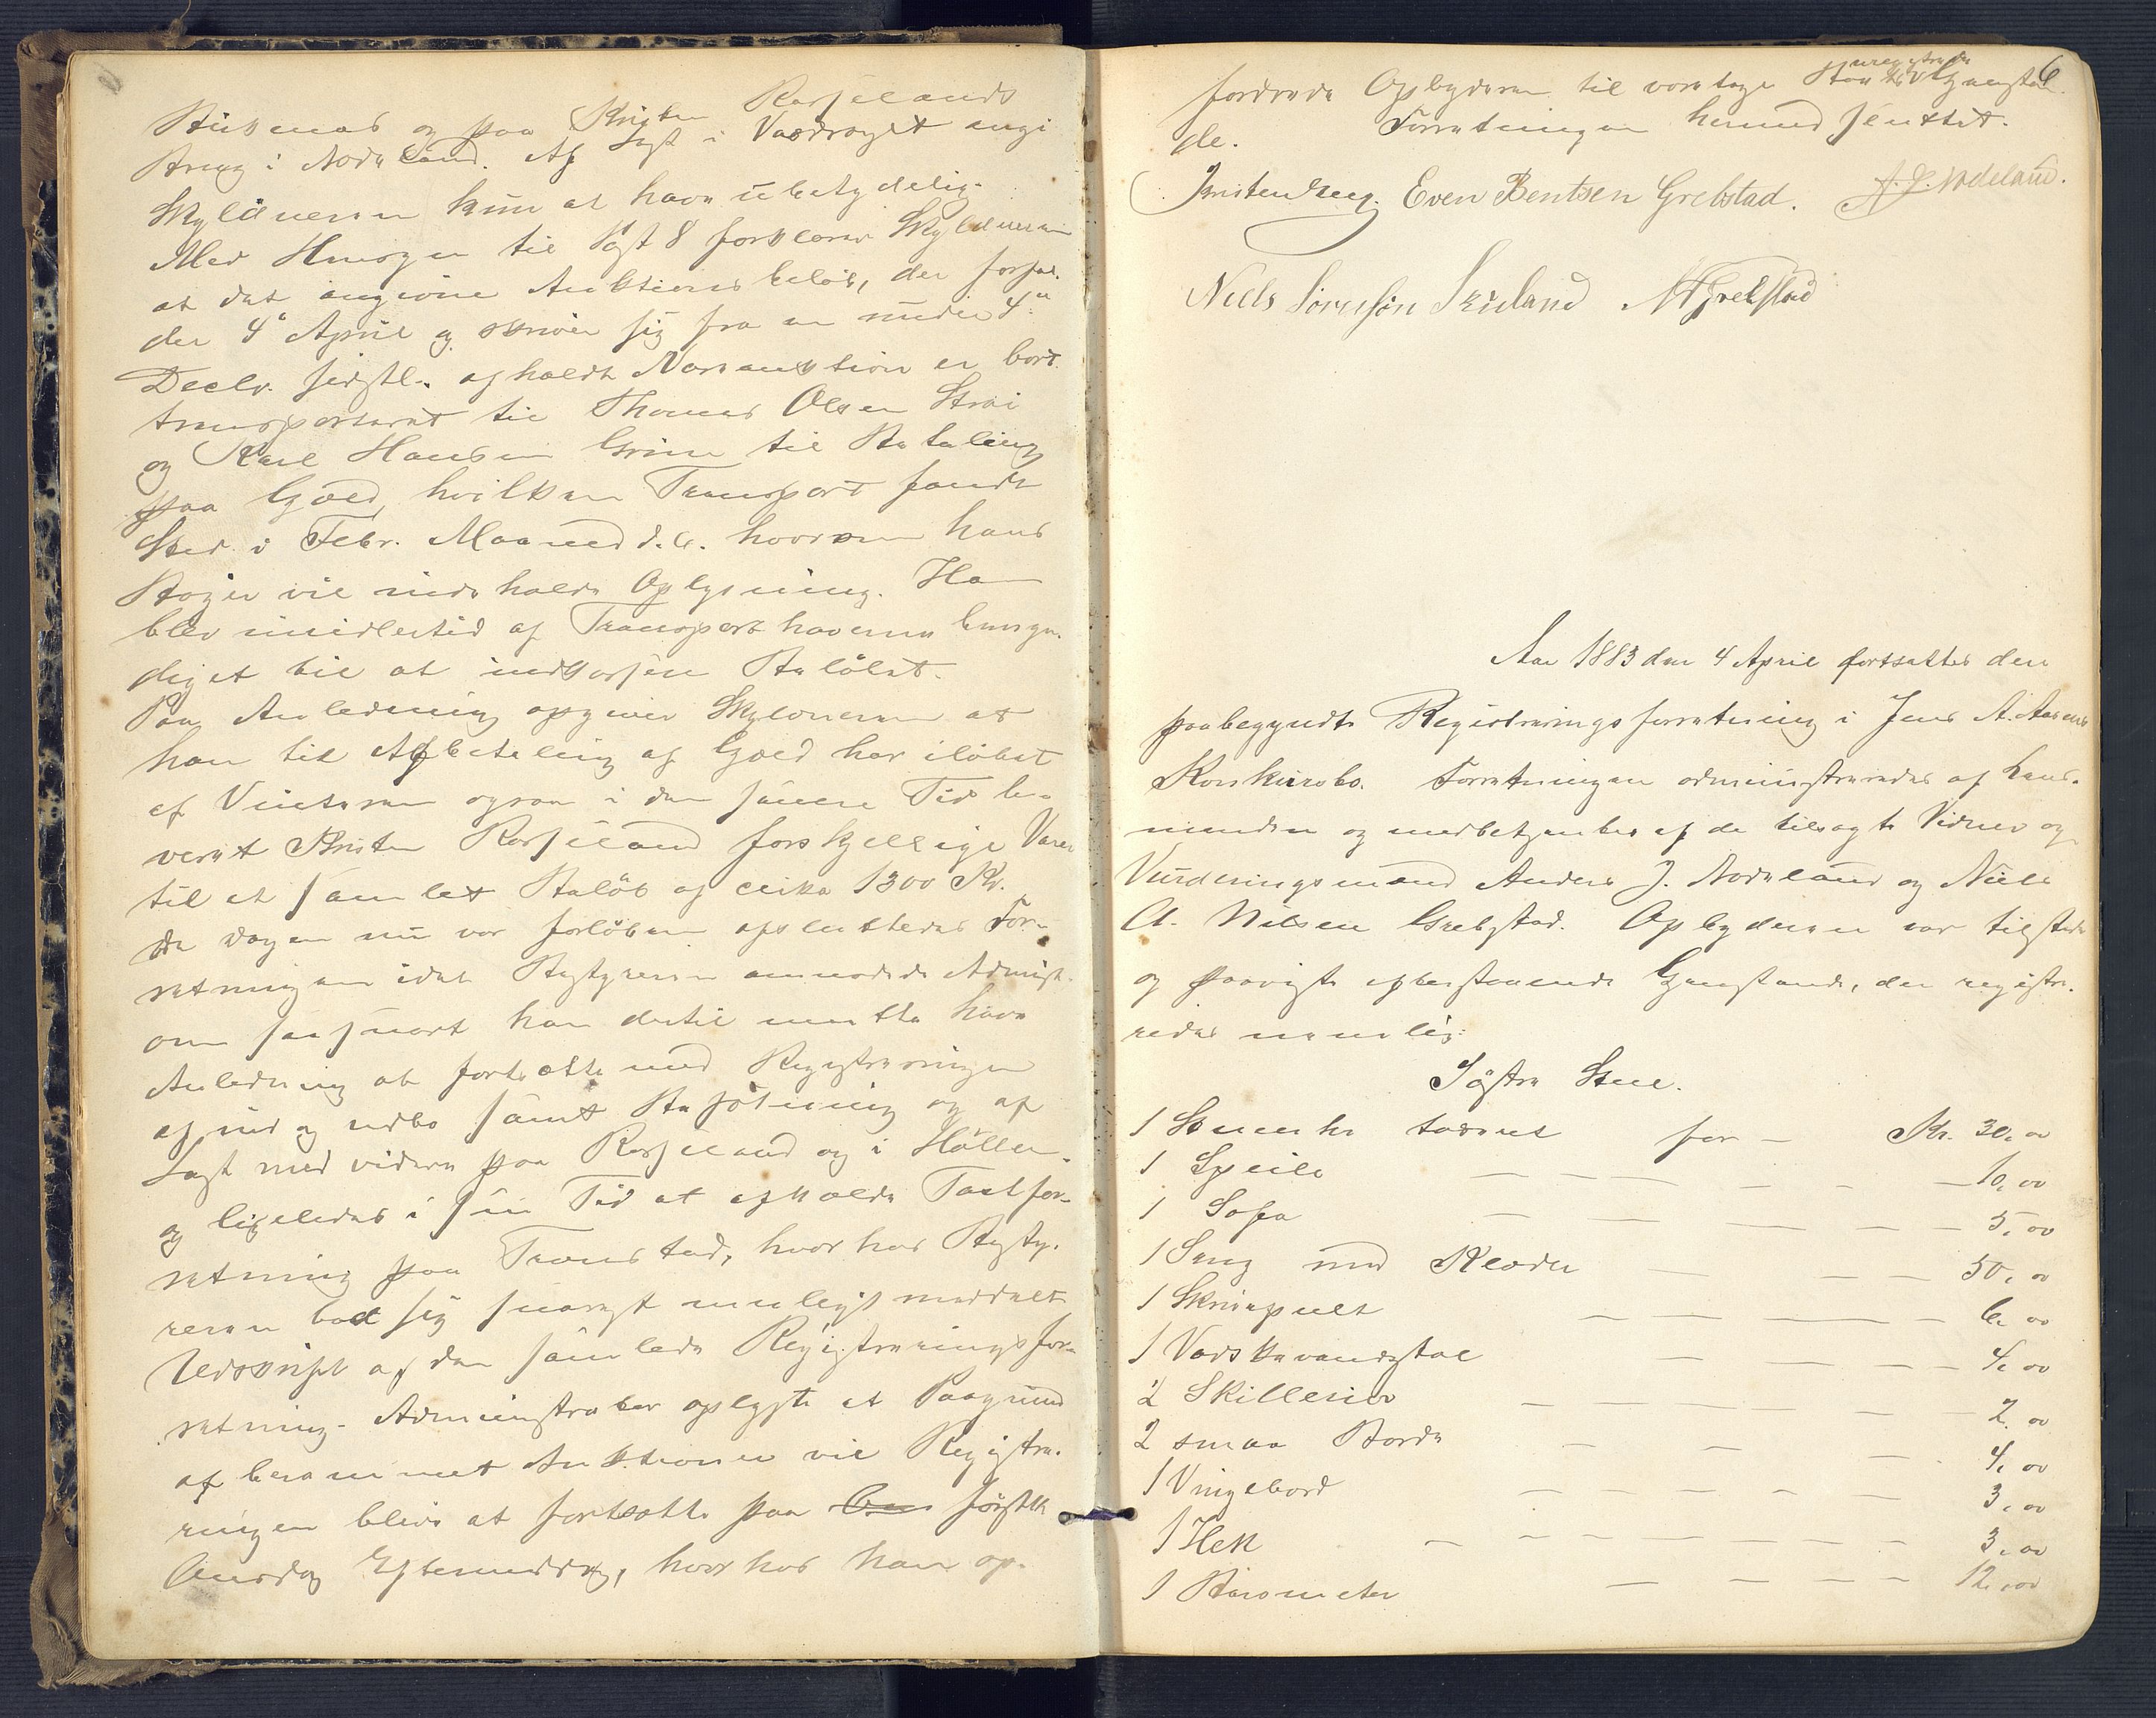 Buksmad og paa Kristen Rosselands
Brug i Nodeland. Af Løst i Vaadraget angi
Skyldneren kun at have ubetydelig.
Med Hensyn til Post 8 forklarer Skyldneren
at det angivne Auktionsbeløb, der forfal.
der 4de April og skriver sig fra en under 4de
Decbr. sidstl. afholdt Vareauktion er bort
transporteret til Thomas Olsen Strai
og Karl Hansen Grim til Betaling
paa Gjæld, hvilken Transport fandt
Sted i Febr. Maaned d.A. hvorom hans
Bøger vil indeholde Oplysning. Han
blev imidlertid af Transporthaverne bemyn-
diget til at indkassere Beløbet.
Paa Anledning opgiver Skyldneren at
han til Afbetaling af Gjæld har i løbet
af Vinteren ogsaa i den senere Tid le-
veret Kristen Rosseland forskjellige Varer
til et samlet Beløb af cirka 1300 Kr.
Da Dagen nu var forløben afsluttedes For-
retningen idet Bestyreren anmodede Administ.
om saasnart han dertil maatte have
Anledning at fortsætte med Registreringen
af ind og udbo samt Besætning og af
Løst med videre paa Rosseland og i Höllen.
og ligeledes i sin Tid at afholde Taxtfor-
retning paa Tronstad, hvorhos Besty.
reren bad sig snarest muligst meddelt
Udskrift af den samlede Registreringsfor-
retning. Administrator oplyste at Paagrund
af berammet Auktioner vil Registre.
ringen blive at fortsætte paa førstk
Onsdag Eftermiddag, hvorhos han op-
fordrede Opbyderen til varetage uregistrerede Gjenstan 6
de. Forretningen hermed sluttet.
Kristen Even Bentsen Grebstad. A. J. Nodeland.
Niels Sörensön NAGrebstad
Aar 1883 den 4 April fortsattes den
paabegyndte Registreringsforretning i Jens A. Aasens
Konkursbo. Forretningen administreredes af Lens-
manden og medbetjentes af de tilsagte Vidner og
Vurderingsmænd Anders J. Nodeland og Niels
A. Nilsen Grebstad. Opbyderen var tilstede
og paaviste efterstaaende Gjenstande, der registre.
redes nemlig:
Söstre Stue.
1 Stueuhr taxeret for — Kr. 30,00
1 Speile — — — — — — 10,00
1 Sofa — — — — — — 5,00
1 Seng med Klæder — — — 50,00
1 Skrivepult — — — — — 6,00
1 Vadskevandstol — — — — 4,00
2 Skillerier — — — — — 2,00
2 smaa Borde — — — 4,00
1 Vingebord — — — — — 3,00
1 Hek — — — — — — 3,00
1 Barometer — — — — 12,00